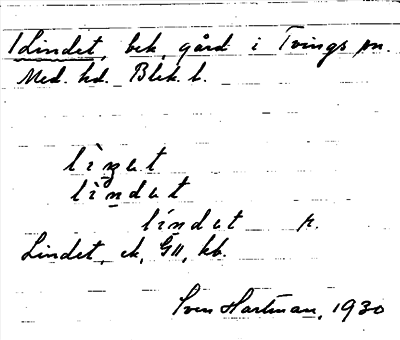 Lindet, bek. gård i Tvings sn.
Med. hd. Blek. l.
lìṇet
lìndet
líndet r.
Lindet, ek, GII, kb.
Sven Hartman, 1930